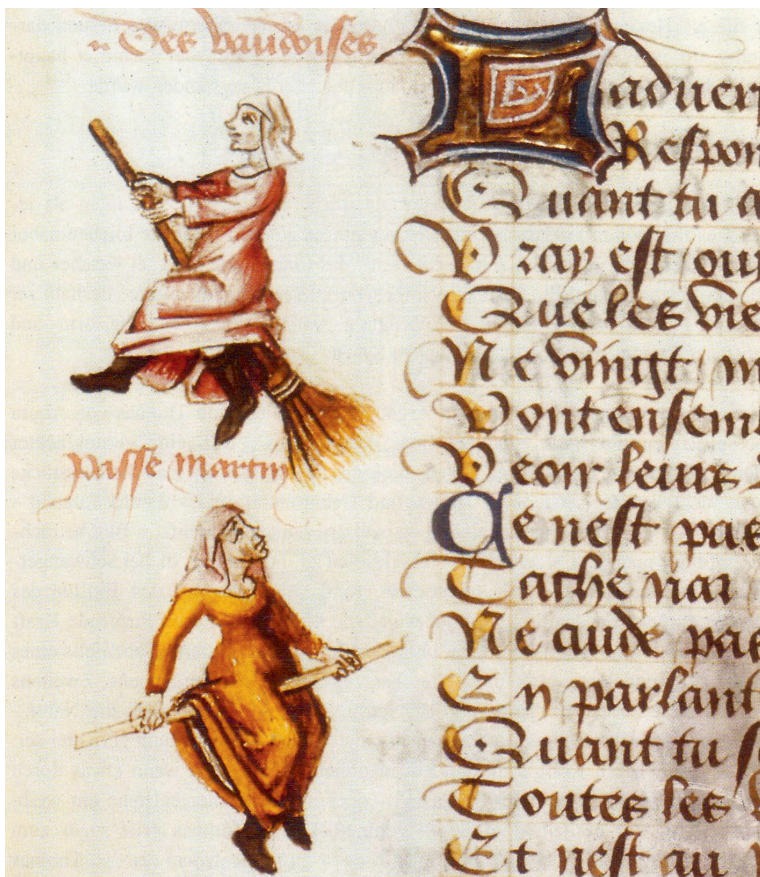 Des vaudoises
passe martin
L aduer
Respon
Quant tu a
Vray est ouy
Que les vie
Ne vingt m
Vont ensem
Veoir leurs
Ce nest pas
Tache par
Ne cuide pas
En parlant
Quant tu s
Toutes les v
Et nest au